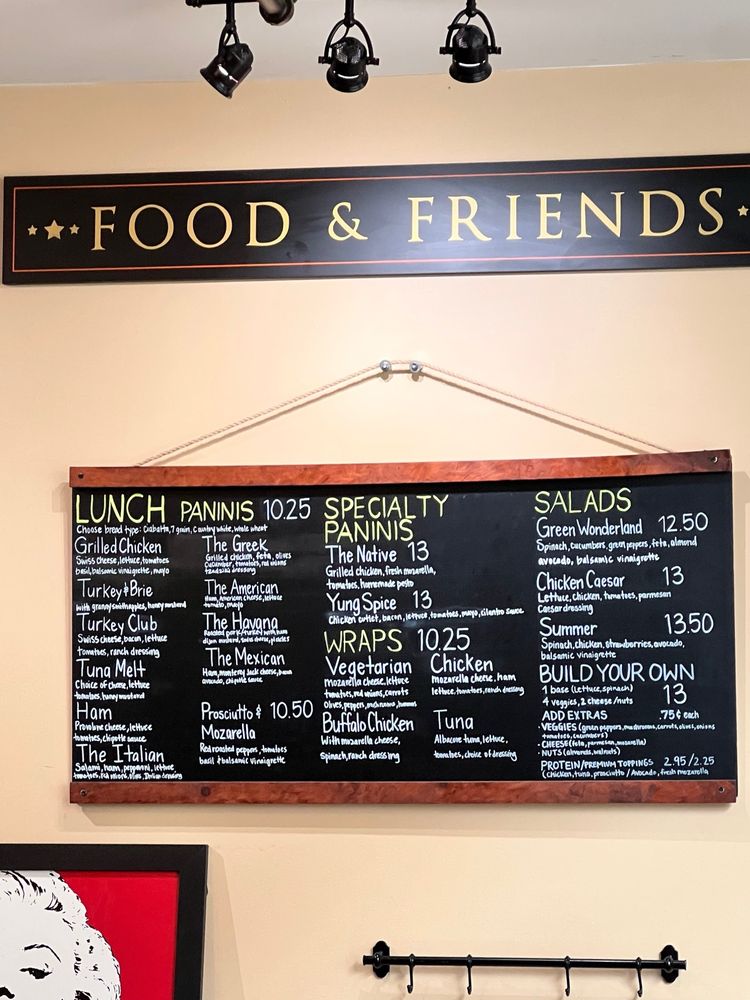 FOOD & FRIENDS
LUNCH PANINIS 10.25
Choose bread type: Ciabatta, 7 grain, Country white, whole wheat
Grilled Chicken
Swiss cheese, lettuce, tomatoes
basil, balsamic vinaigrette, mayo
Turkey & Brie
with granny smith apples, honey mustard
Turkey Club
Swiss cheese, bacon, lettuce
tomatoes, ranch dressing
Tuna Melt
Choice of cheese, lettuce
tomatoes, honey mustard
Ham
Provolone cheese, lettuce
tomatoes, chipotle sauce
The Italian
Salami, ham, pepperoni, lettuce
tomatoes, red onions, olives, Italian dressing
The Greek
Grilled chicken, feta, olives
cucumber, tomatoes, red onions
dressing
The American
Ham, American cheese, lettuce
tomato, mayo
The Havana
Roasted pork/turkey with ham
dijon mustard, swiss cheese, pickles
The Mexican
Ham, monterey Jack cheese,
avocado, chipotle sauce
Prosciutto & 10.50
Mozarella
Red roasted peppers, tomatoes
basil & balsamic vinaigrette
SPECIALTY
PANINIS
The Native 13
Grilled chicken, fresh mozarella,
tomatoes, homemade pesto
Yung Spice 13
Chicken cutlet, bacon, lettuce, tomatoes, mayo, cilantro sauce
WRAPS 10.25
Vegetarian
mozarella cheese, lettuce
tomatoes, red onions, carrots
Olives, peppers, mushrooms, hummus
Buffalo Chicken
With mozarella cheese,
Spinach, ranch dressing
Chicken
mozarella cheese, ham
lettuce, tomatoes, ranch dressing
Tuna
Albacore tuna, lettuce,
tomatoes, choice of dressing
SALADS
Green Wonderland 12.50
Spinach, cucumbers, green peppers, feta, almond
avocado, balsamic vinaigrette
Chicken Caesar 13
Lettuce, chicken, tomatoes, parmesan
Caesar dressing
Summer 13.50
Spinach, chicken, strawberries, avocado,
balsamic vinaigrette
BUILD YOUR OWN
1 base (Lettuce, spinach) 13
4 veggies, 2 cheese/nuts
ADD EXTRAS .75¢ each
- VEGGIES (green peppers, mushrooms, carrots, olives, onions
tomatoes, cucumbers)
- CHEESE (feta, parmesan, mozarella)
- NUTS (almonds, walnuts)
PROTEIN/PREMIUM TOPPINGS 2.95/2.25
(Chicken, tuna, prosciutto / Avocado, fresh mozarella